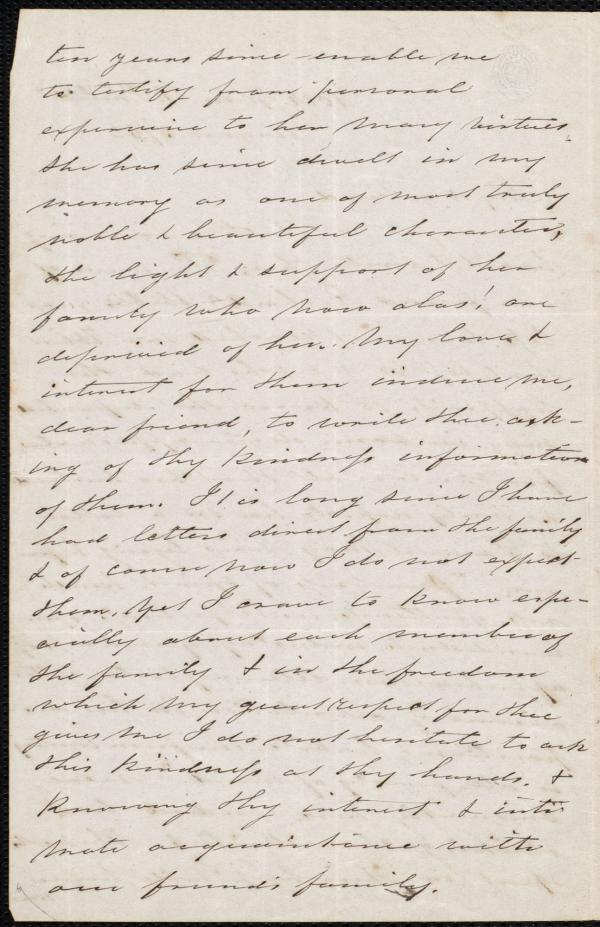 ten years since enable me
to testify from personal
experience to her many virtues.
She has since dwelt in my
memory as one of most truly
noble & beautiful character,
the light & support of her
family who now alas! are
deprived of her. My love &
interest for them induce me,
dear friend, to write thee, ask-
ing of thy kindness information
of them. It is long since I have
had letters direct from the family
& of course now I do not expect
them. Yet I crave to know espe-
cially about each member of
the family & in the freedom
which my great respect for thee
gives me I do not hesitate to ask
this kindness at thy hands, &
knowing thy interest & inti
mate acquaintance with
our friend's family.